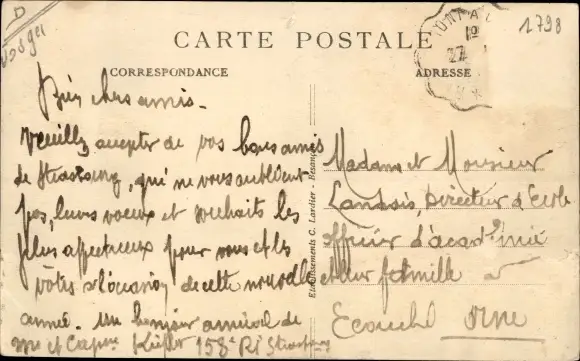 D
Vosges
1798
CARTE POSTALE
CORRESPONDANCE
ADRESSE
27
Bien chers amis -
Veuillez accepter de vos bons amis
de Strasbourg, qui ne vous oublient
pas, leurs voeux et souhaits les
plus affectueux pour vous et les
vôtres à l'occasion de cette nouvelle
année. Un bonjour amical de
Mme et Capne 158e RI Strasbourg
Etablissements C. Lardier - Besançon
Madame et Monsieur
Landais, Directeur d'Ecole
officier d'académie
et leur famille à
Ecouché Orne